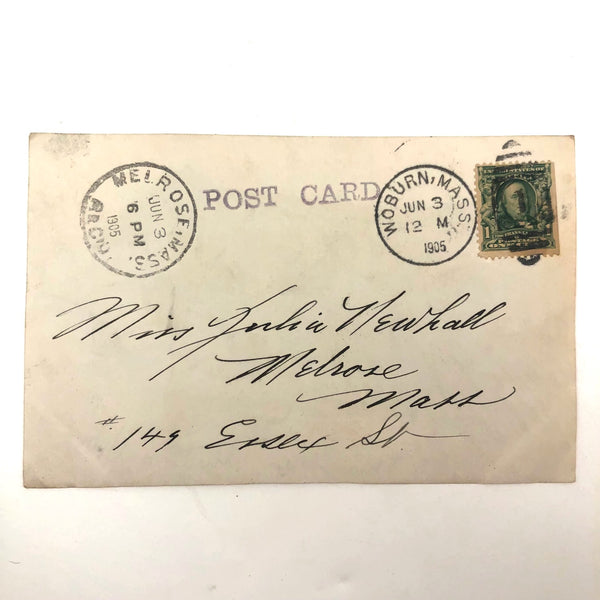 MELROSE, MASS.
JUN 3
6 PM
1905
REC'D.
POST CARD
WOBURN, MASS.
JUN 3
12 M
1905
1
Miss Julia Newhall
Melrose
Mass
# 149 Essex St.